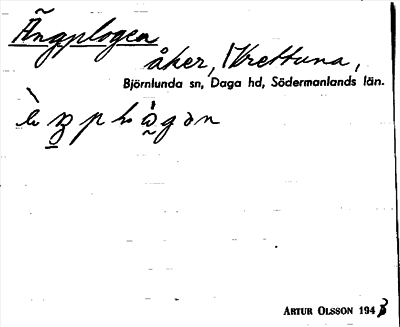 Ängplogen
åker, Krettuna,
Björnlunda sn, Daga hd, Södermanlands län.
ARTUR OLSSON 1943